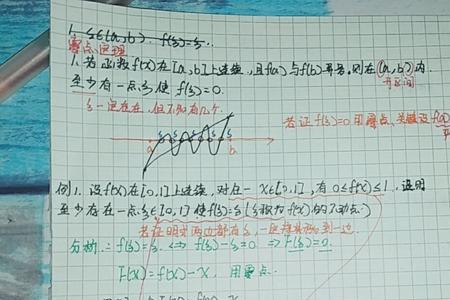 1. ξ∈(a,b). f(ξ)=ξ...
零点定理
1. 若函数f(x)在[a,b]上连续,且f(a)与f(b)异号,则在(a,b)内
开区间
至少有一点ξ,使f(ξ)=0.
ξ一定存在,但不知有几个.
若证f(ξ)=0用零点,关键设f(a)
a ξ ξ ξ ξ ξ b
例1. 设f(x)在[0,1]上连续,对任一x∈[0,1],有0≤f(x)≤1.证明
至少存在一点ξ∈[0,1]使f(ξ)=ξ(ξ称为f(x)的不动点)
若证明式两边都有ξ,一定移到一边.
分析:f(ξ)=ξ ⇔ f(ξ)-ξ=0 ⇒ F(ξ)=0.
F(x)=f(x)-x, 用零点.